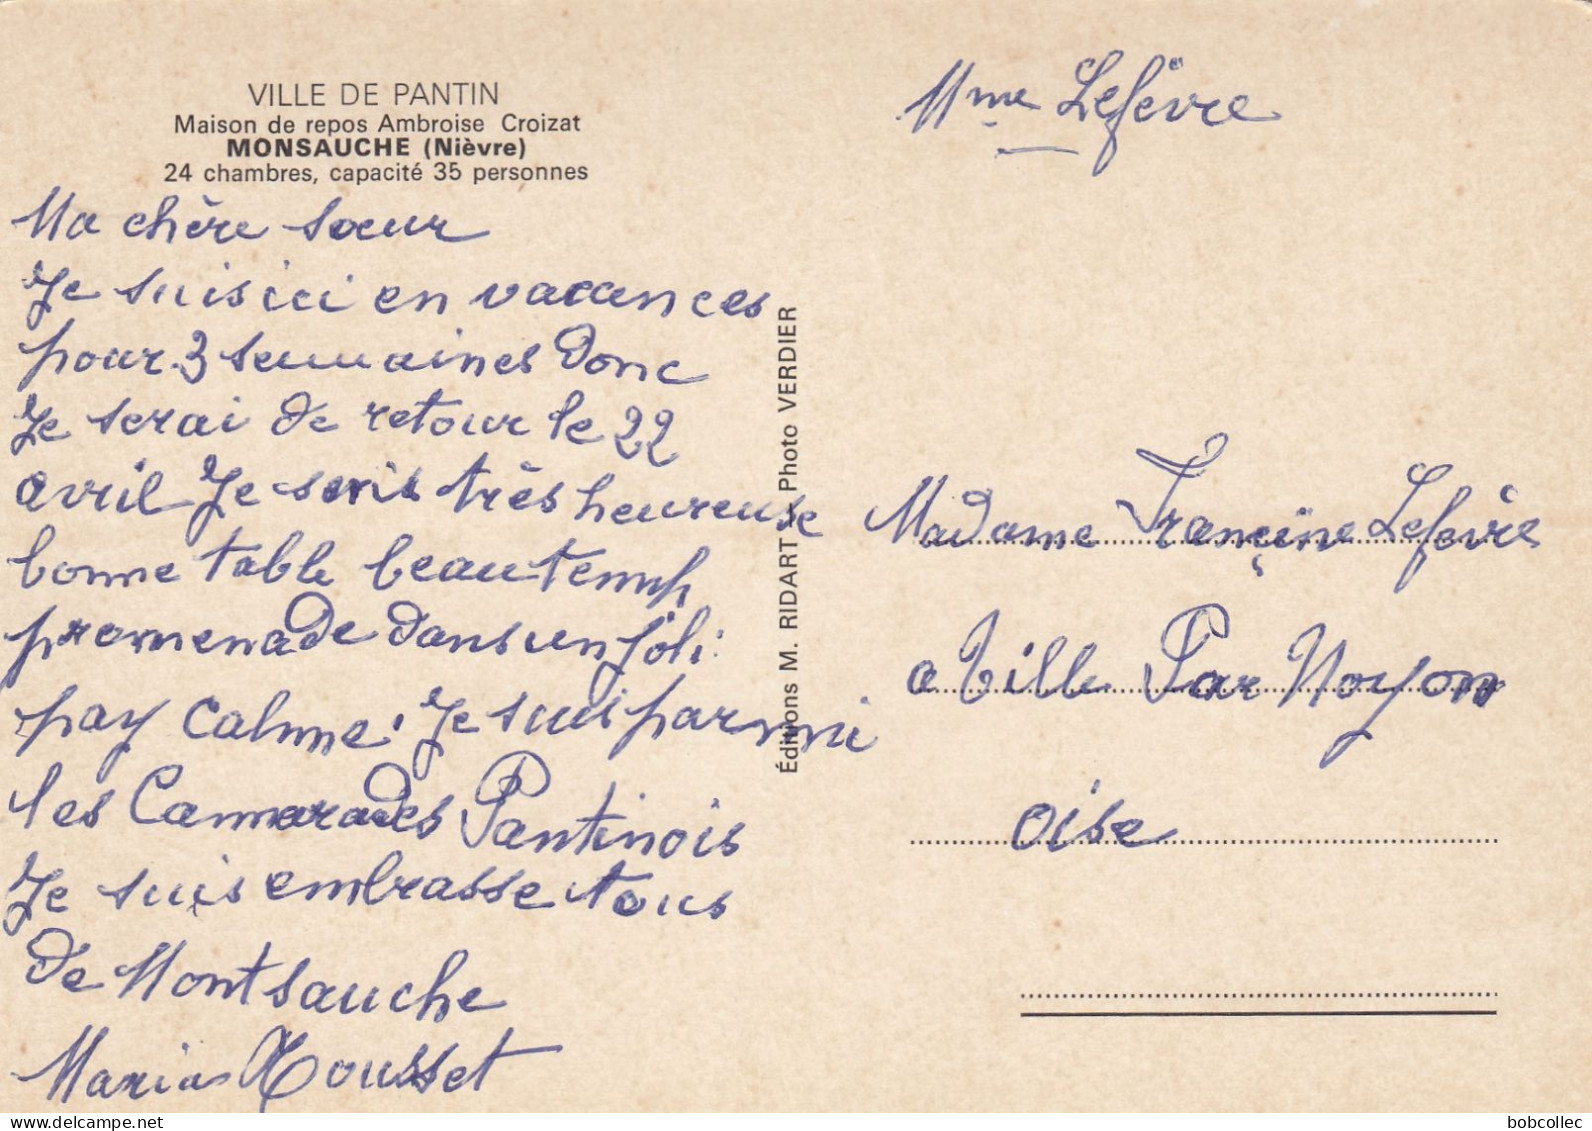 VILLE DE PANTIN
Maison de repos Ambroise Croizat
MONSAUCHE (Nièvre)
24 chambres, capacité 35 personnes
Ma chère sœur
Je suis ici en vacances
pour 3 semaines donc
Je serai de retour le 22
avril Je suis très heureuse
bonne table beau temp
promenade dans un joli
pay calme. Je suis parmi
les Camarades Pantinois
Je suis embrasse tous
de Montsauche
Maria Housset
Éditions M. RIDART - Photo VERDIER
Mme Lefèvre
Madame Françine Lefevre
a Ville Par Noyon
oise
bobcollec